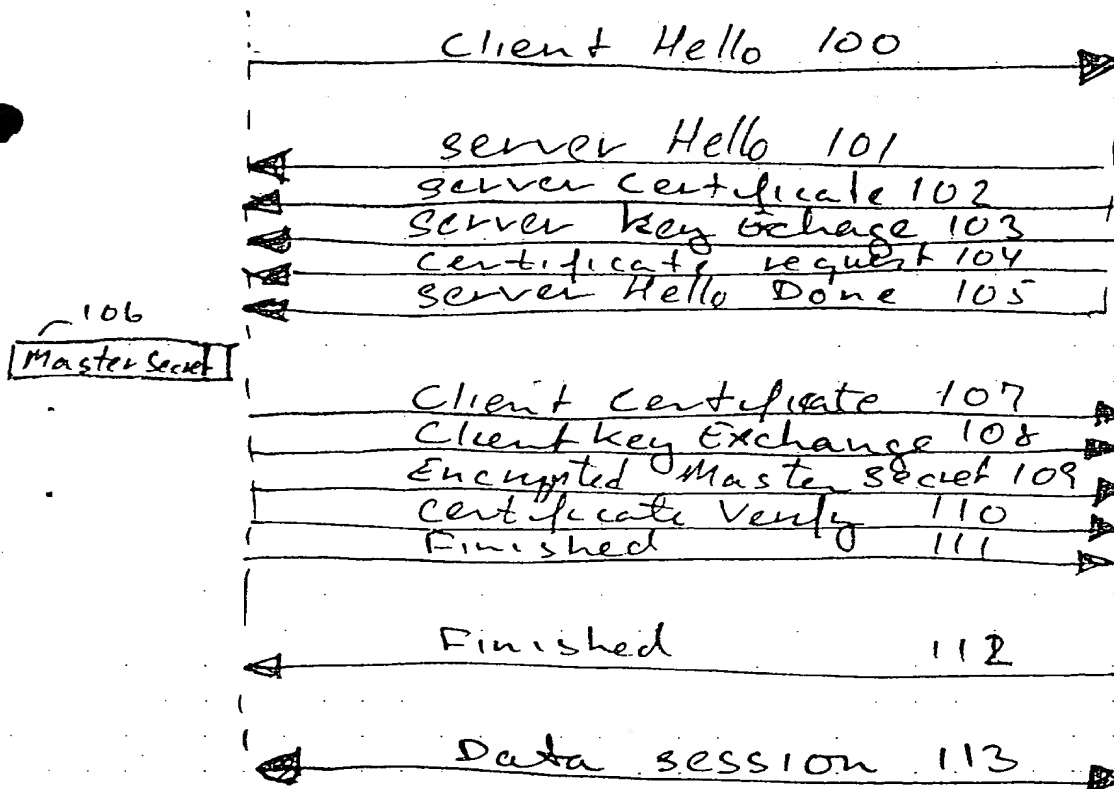 Client Hello 100
server Hello 101
server certificate 102
server key Exchage 103
certificate request 104
server Hello Done 105
106
Master Secret
Client certificate 107
Client key Exchange 108
Encrypted Master secret 109
certificate Verify 110
Finished 111
Finished 112
Data session 113